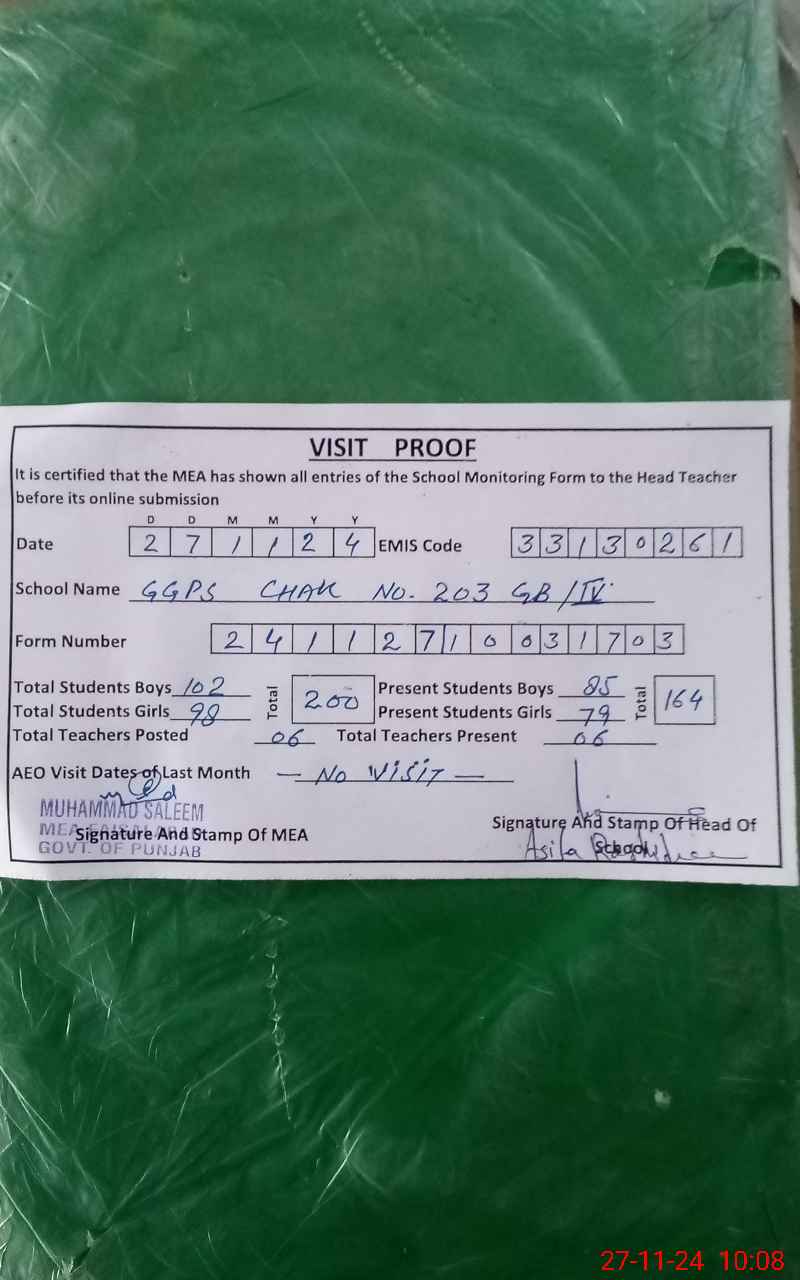 VISIT PROOF
It is certified that the MEA has shown all entries of the School Monitoring Form to the Head Teacher
before its online submission
D D M M Y Y
Date 2 7 1 1 2 4 EMIS Code 3 3 1 3 0 2 6 1
School Name GGPS CHAK NO. 203 GB/IV
Form Number 2 4 1 1 2 7 1 0 0 3 1 7 0 3
Total Students Boys 102 Total 200 Present Students Boys 85 Total 164
Total Students Girls 98 Present Students Girls 79
Total Teachers Posted 06 Total Teachers Present 06
AEO Visit Dates of Last Month — NO VISIT —
MUHAMMAD SALEEM
MEA FAISALABAD
Signature And Stamp Of MEA
GOVT. OF PUNJAB
Signature And Stamp Of Head Of
School
Asifa
27-11-24 10:08